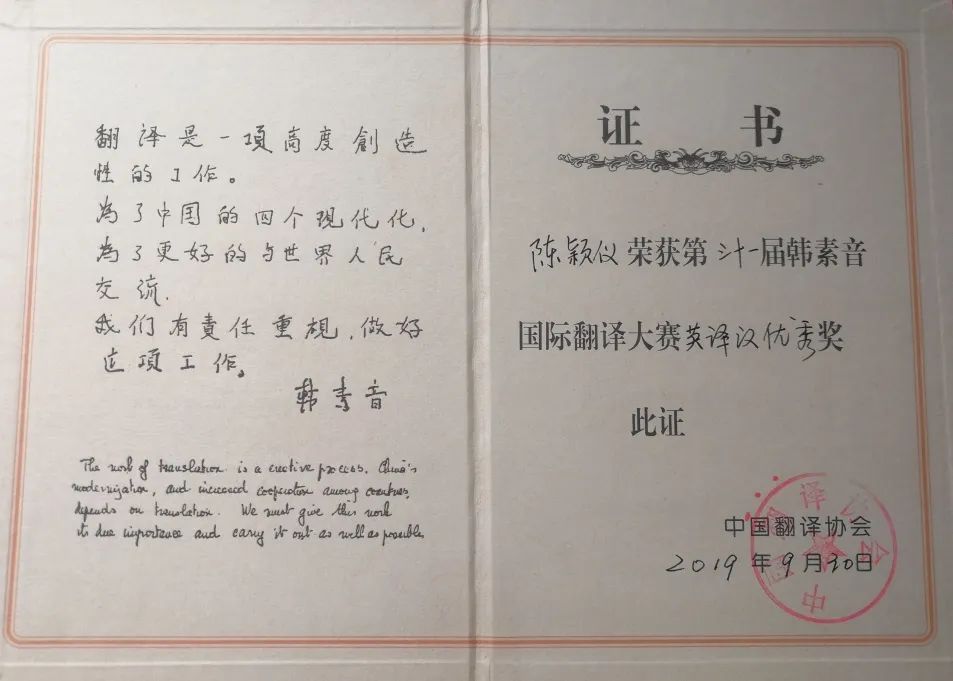 翻译是一項高度創造
性的工作。
為了中国的四个现代化,
為了更好的与世界人民
交流.
我们有責任重視,做好
这項工作。
韩素音
The work of translation is a creative process. China's
modernization, and increased cooperation among countries,
depends on translation. We must give this work
its due importance and carry it out as well as possible.
证书
陈颖仪荣获第卅一届韩素音
国际翻译大赛英译汉优秀奖
此证
中国翻译协会
2019年9月30日
中国翻译协会